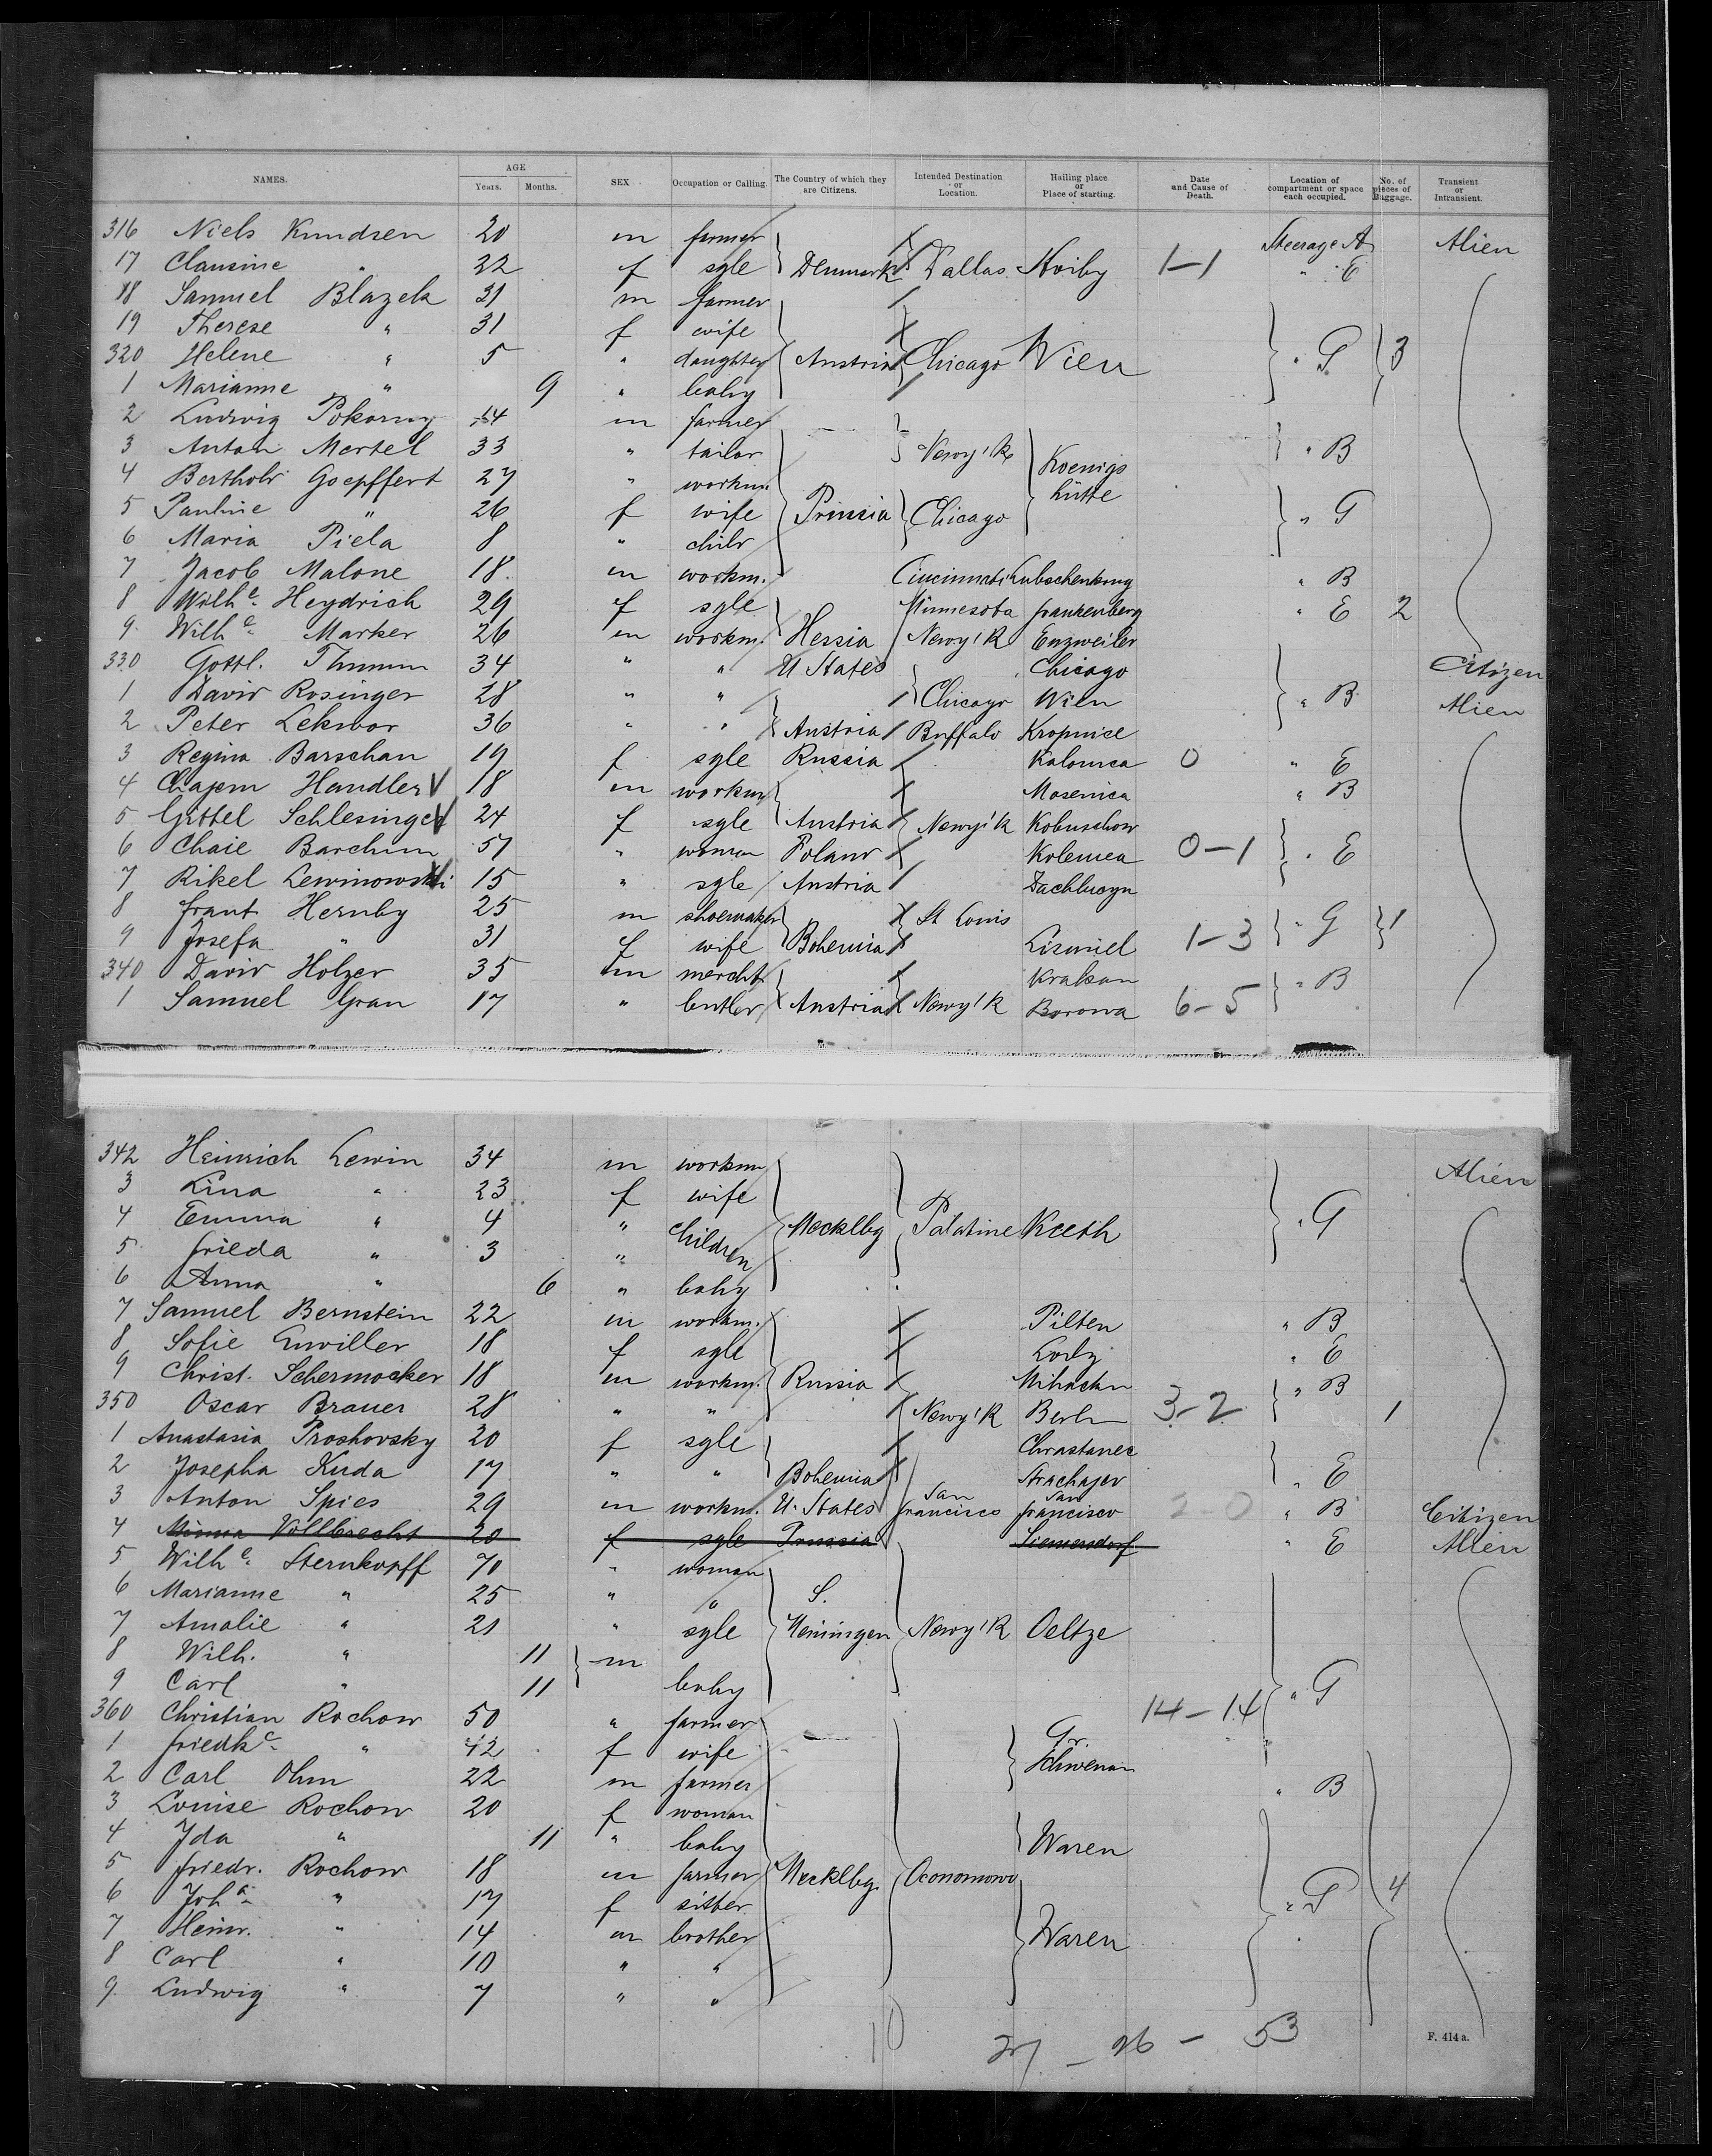 NAMES. AGE Years. Months. SEX Occupation or Calling. The Country of which they are Citizens. Intended Destination or Location. Hailing place or Place of starting. Date and Cause of Death. Location of compartment or space each occupied. No. of pieces of Baggage. Transient or Intransient.
316 Niels Knudsen 20 m farmer Steerage A Alien
17 Clausine " 22 f sgle Denmark Dallas Hoiby 1-1 " E
18 Samuel Blazek 31 m farmer
19 Therese " 31 f wife
320 Helene " 5 " daughter Austria Chicago Wien " G 3
1 Marianne " 9 " baby
2 Ludwig Pokorny 44 m farmer
3 Anton Mertel 33 " tailor Newy'k " B
4 Berthold Goepffert 27 " workm. Koenigshütte
5 Pauline " 26 f wife Prussia Chicago " G
6 Maria Piela 8 " child
7 Jacob Malone 18 m workm. Cincinnati " B
8 Wilhe. Heydrich 29 f sgle Minnesota Frankenberg " E 2
9 Wilhe. Marker 26 m workm. Hessia Newy'k Enzweiler
330 Gottl. Thumm 34 " " U States Chicago Citizen
1 David Rosinger 28 " " Chicago Wien " B Alien
2 Peter Lekwor 36 " " Austria Buffalo Kropnice
3 Regina Barschan 19 f sgle Russia Kolomea 0 " E
4 Chajem Handler V 18 m workm Mosenica " B
5 Gittel Schlesinger V 24 f sgle Austria Newy'k Kobuschow
6 Chaie Barchim 57 " woman Poland Kolemea 0-1 " E
7 Rikel Lewinowski 15 " sgle Austria Dachlucyn
8 Frant Hernby 25 m shoemaker St Louis " G 1
9 Josefa " 31 f wife Bohemia Lismiel 1-3
340 David Holzer 35 m mercht Krakau " B
1 Samuel Gran 17 " butler Austria Newy'k Borowa 6-5
342 Heinrich Lewin 34 m workm Alien
3 Lina " 23 f wife
4 Emma " 4 " children Mecklbg Palatine Kieth " G
5 Frieda " 3 "
6 Anna " 6 " baby
7 Samuel Bernstein 22 m workm. Pilten " B
8 Sofie Enwiller 18 f sgle Lodz " E
9 Christ. Schermocker 18 m workm. Russia " B
350 Oscar Brauer 28 " " Newy'k Berlin 3-2 1
1 Anastasia Proshovsky 20 f sgle Chrastanec
2 Josepha Kuda 17 " " Bohemia " E
3 Anton Spies 29 m workm. U. States San Francisco San Francisco 2 0 " B Citizen
4 Minna Vollbrecht 20 f sgle Prussia Siemersdorf " E Alien
5 Wilhe. Sternkopff 70 " woman
6 Marianne " 25 " " S.
7 Amalie " 21 " sgle Meiningen Newy'k Oeltze
8 Wilh. " 11 m
9 Carl " 11 baby " G
360 Christian Rochow 50 " farmer 14-14
1 Friedke. " 42 f wife Gr.
2 Carl Ohm 22 m farmer " B
3 Louise Rochow 20 f woman
4 Ida " 11 " baby Waren
5 Friedr. Rochow 18 m farmer Mecklbg. Oconomowo
6 Joha. " 17 f sister " G 4
7 Heinr. " 14 m brother Waren
8 Carl " 10 " "
9 Ludwig " 7 " "
10 27 - 26 - 53
F. 414 a.